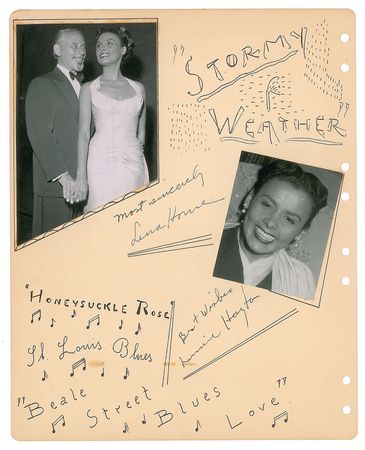 "STORMY
WEATHER"
Most sincerely
Lena Horne
Best Wishes
Lennie Hayton
"HONEYSUCKLE ROSE"
St. Louis Blues
"Beale Street Blues Love"